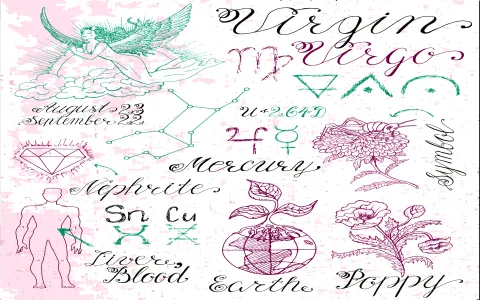 Virgin
Virgo
August 23
September 22
U+264D
Mercury
Symbol
Nephrite
Sn Cu
Livere,
Blood
Earth
Poppy